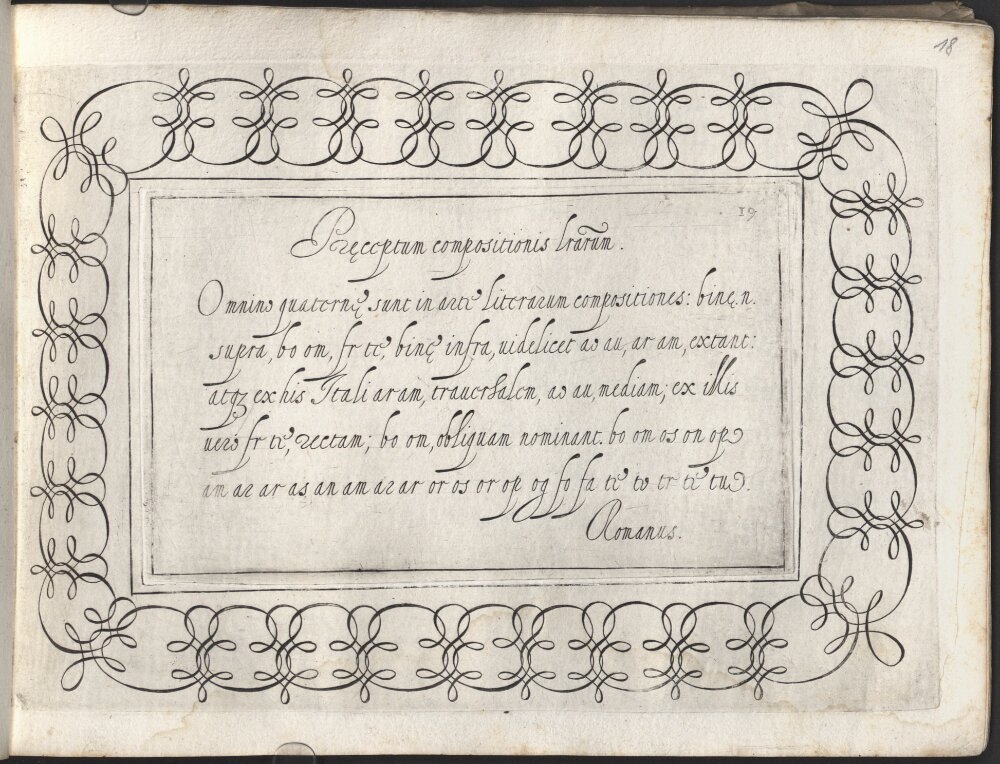 18
19
Pręceptum compositionis lr̃arũm.
Omnino quaternę sunt in arte literarum compositiones: binę .n.
supra, bo om, fr te, binę infra, uidelicet ao au, ar am, extant:
atqz ex his Itali ar am, trauersalem, ao au, mediam; ex illis
uero fr te, rectam; bo om, obliquam nominant. bo om os on op
am az ar as an am az ar or os or op og fo fa te to tr te tu
Romanus.